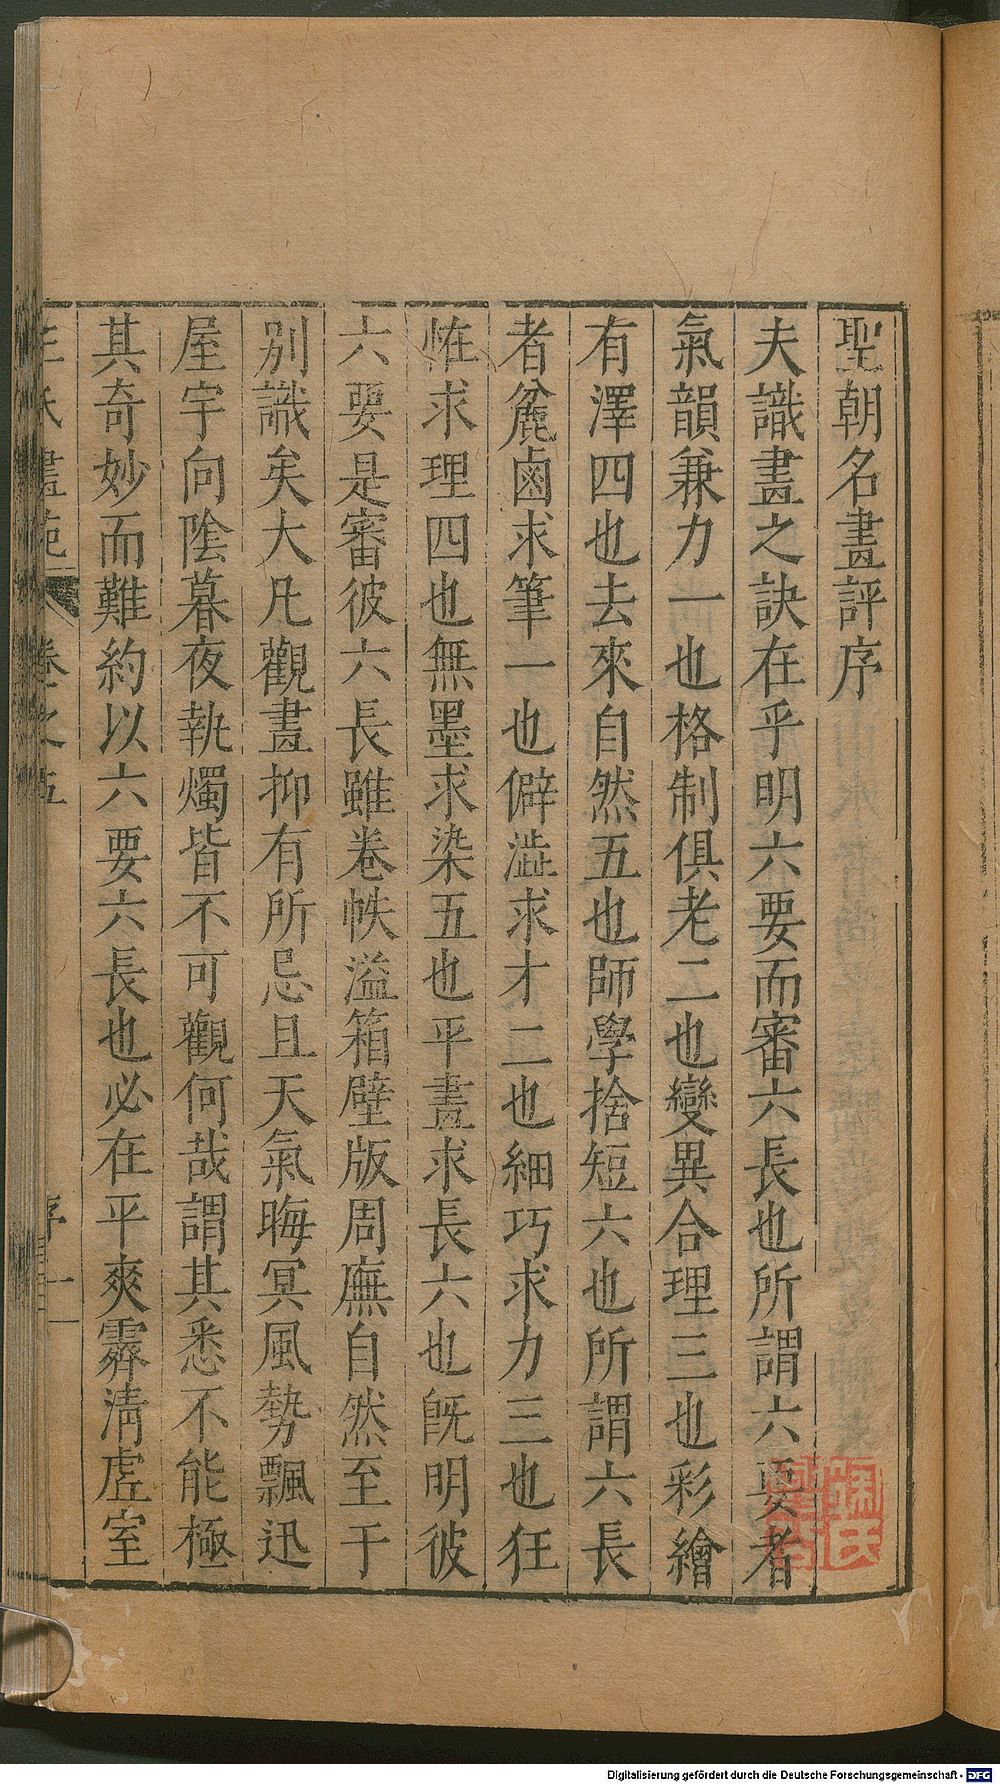 聖朝名畫評序
夫識畫之訣在乎明六要而審六長也所謂六要者
氣韻兼力一也格制俱老二也變異合理三也彩繪
有澤四也去來自然五也師學捨短六也所謂六長
者麄鹵求筆一也僻澁求才二也細巧求力三也狂
恠求理四也無墨求染五也平畫求長六也旣明彼
六要是審彼六長雖卷帙溢箱壁版周廡自然至于
別識矣大凡觀畫抑有所忌且天氣晦冥風勢飄迅
屋宇向陰暮夜執燭皆不可觀何哉謂其悉不能極
其奇妙而難約以六要六長也必在平爽霽清虛室
王氏畫苑 卷之五 序 一
Digitalisierung gefördert durch die Deutsche Forschungsgemeinschaft - DFG